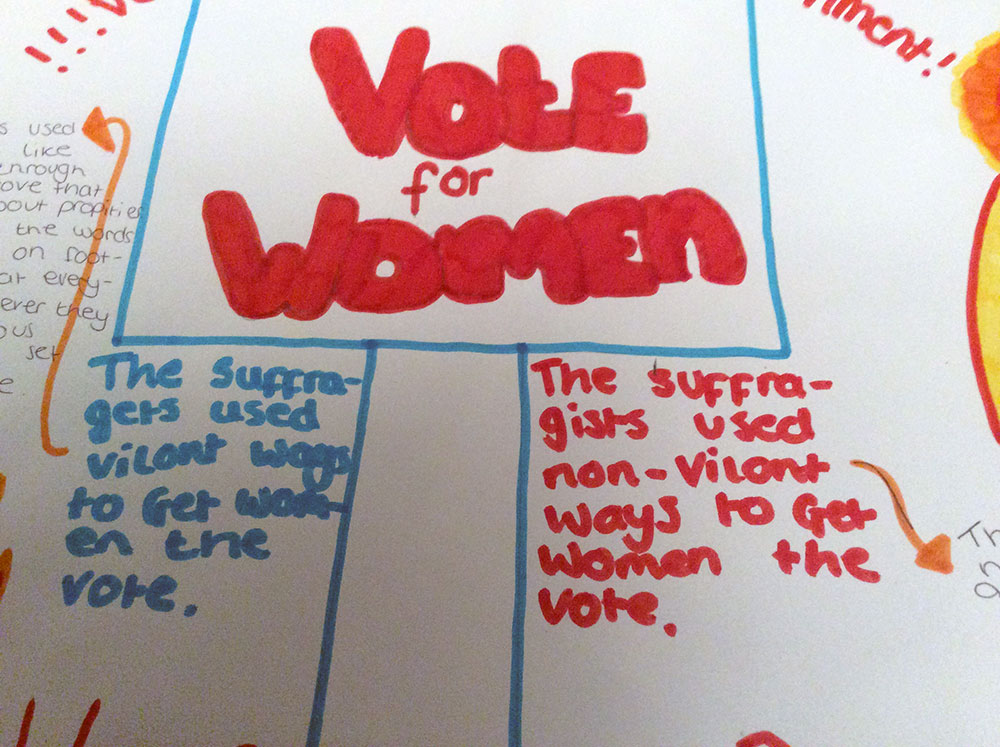 Vote
for
Women
ment!
s used
like
through
ove that
bout propities
the words
on foot-
at every-
ever they
ous
set
e
The suffra-
gets used
vilont ways
to Get wom-
en the
vote.
The suffra-
gists used
non-vilont
ways to Get
women the
vote.
Th